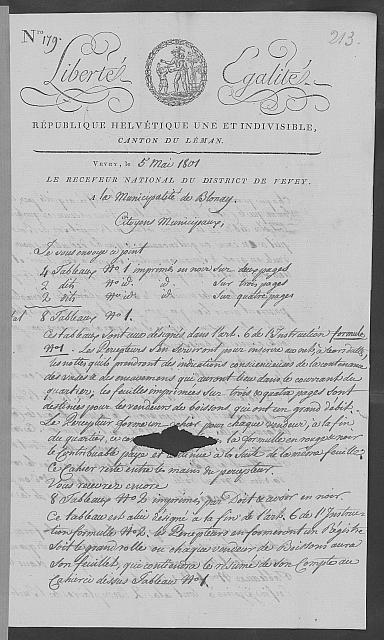 Nro 179.
213.
Liberté, Egalité,
RÉPUBLIQUE HELVÉTIQUE UNE ET INDIVISIBLE,
CANTON DU LÉMAN.
VEVEY, le 5e Mai 1801
LE RECEVEUR NATIONAL DU DISTRICT DE VEVEY.
A la Municipalité de Blonay.
Citoyens Municipaux,
Je vous envoye ci joint
4 Tableaux No 1 imprimé en noir Sur deux pages
2 dits No id. id. Sur trois pages
2 dits No id. id. Sur quatre pages
8 Tableaux No 1.
Ces tableaux sont aux désignés dans l'art. 6 de l'Instruction formule
No 1. Les Percepteurs s'en serviront pour inscrire
les notes qu'ils prendront des indications
des vases & des encavemens qui auront lieu dans le courant du
quartier, les feuilles imprimées sur trois ou quatre pages sont
destinées pour les vendeurs de boissons qui ont un grand debit.
Le Percepteur cahier pour chaque vendeur, à la fin
de quartier, la formule en rouge & noir
le contribuable paye et continue à la Suite de la même feuille.
Ce Cahier reste entre les mains du percepteur.
Vous recevrez encore
8 Tableaux No 2 imprimés par Doit & avoir en noir.
Ce tableau est aussi désigné à la fin de l'art. 6 de l'Instruc-
tion formule No 2. les Percepteurs en formeront un Régistre
Soit le grand rolle ou chaque vendeur de Boissons aura
Son feuillet, qui contiendra le résumé de Son Compte au
Cahier ci dessus Tableau No 1.